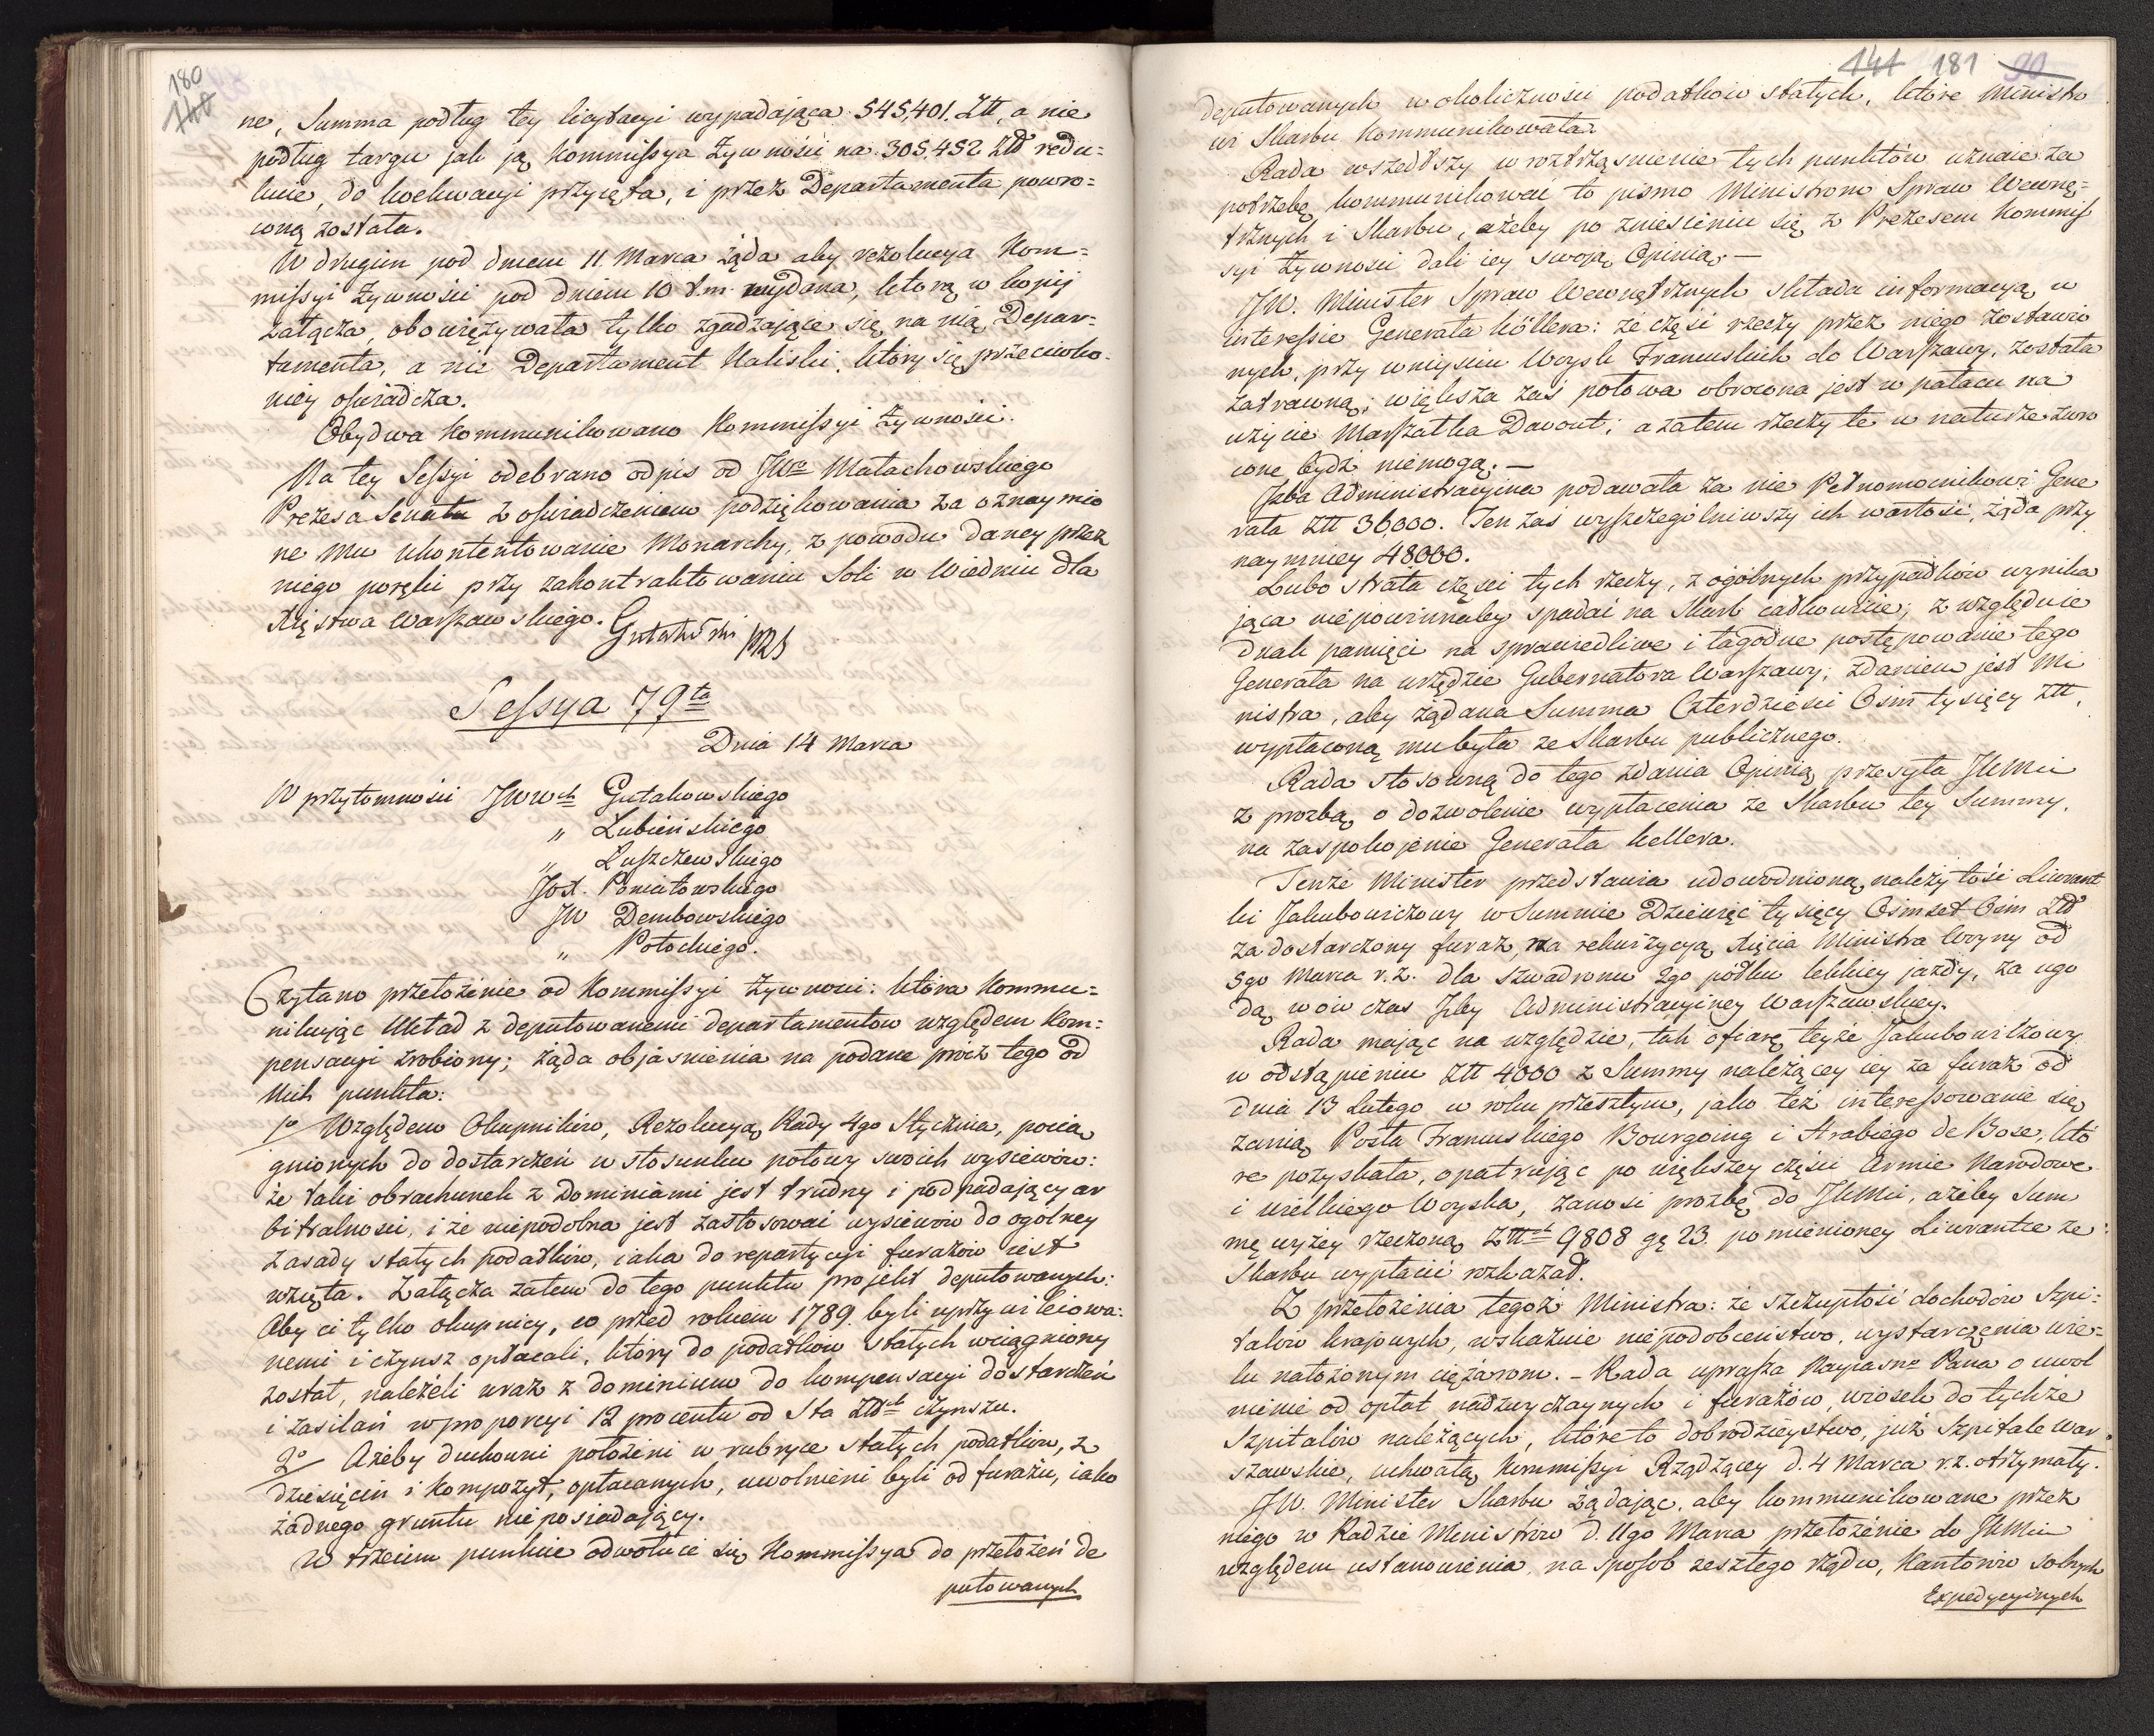 180
140
ne, Summa podług tey licytacyi wypadająca 545,401. Złł, a nie
podług targu jak ją Kommissya Żywności na 305,452 Złł redu=
kuie, do koekwacyi przyięta, i przez Departamenta powró=
coną została.
W drugim pod dniem 11. Marca żąda aby rezolucya Kom=
missyi Żywności pod dniem 10 t.m. wydana, którą w kopij
załącza, obowięzywała tylko zgadzające się na nią Depar=
tamenta, a nie Departament Kaliski, który się przeciwko
niey oświadcza.
Obydwa Kommunikowano Kommissyi Żywności.
Na tey Sessyi odebrano odpis od JWgo Małachowskiego
Prezesa Senatu z oświadczeniem podziękowania za oznaymio
ne mu ukontentowanie Monarchy, z powodu daney przez
niego poręki przy zakontraktowaniu Soli w Wiedniu dla
Xięstwa Warszawskiego. Gutakowski
Sessya 79ta
Dnia 14 Marca
W przytomności JWWch Gutakowskiego
" Lubieńskiego
" Łuszczewskiego
JOX. Poniatowskiego
JW Dembowskiego
" Potockiego.
Czytano przełożenie od Kommissyi Żywności: która Kommu=
nikując Układ z deputowanemi departamentow względem Kom=
pensacyi zrobiony; żąda objaśnienia na podane prócz tego od
nich punkta:
1o Względem Okupników, Rezolucyą Rady 4go Stycznia, pocią
gnionych do dostarczeń w stosunku połowy swoich wysiewów:
że taki obrachunek z Dominiami jest trudny i podpadający ar
bitralności, i że niepodobna jest zastosować wysiewów do ogolney
zasady stałych podatków, iaka do repartycyi furażów iest
wzięta. Załącza zatem do tego punktu projekt deputowanych:
Aby ci tylko okupnicy, co przed rokiem 1789. byli uprzywileiowa=
nemi i czynsz opłacali, który do podatków stałych wciągniony
został, należeli wraz z dominium do kompensacyi dostarczeń
i zasilań w proporcyi 12 procentu od Sta Złłch czynszu.
2o Ażeby duchowni położeni w rubryce stałych podatków, z
dziesięcin i kompozyt, opłacanych, uwolnieni byli od furażu, iako
żadnego gruntu nie posiadający.
W trzecim punkcie odwołuie się Kommissya do przełożeń de
putowanych
141 181 90
deputowanych w okoliczności podatków stałych, które Ministro
wi Skarbu Kommunikowała.
Rada wszedłszy w roztrząśnienie tych punktów uznaie za
potrzebę kommunikować to pismo Ministrom Spraw Wewnę=
trznych i Skarbu, ażeby po zniesieniu się z Prezesem Kommis
syi Żywności dali iey swoją Opinią. —
JW. Minister Spraw Wewnętrznych składa informacyą w
interessie Generała Köllera: że częśi rzeczy przez niego zostawio
nych, przy wniyściu Woysk Francuskich do Warszawy, została
zatrawną; większa zaś połowa obrócona jest w pałacu na
użycie Marszałka Davout; a zatem rzeczy te w naturze zwró
cone bydź niemogą. —
Izba Administracyjna podawała za nie Pełnomocnikowi Gene
rała Złł 36,000. Ten zaś wyszczególniwszy ich wartość, żąda przy
naymniey 48,000.
Lubo strata części tych rzeczy, z ogólnych przypadków wynika
jąca nie powinnaby spadać na Skarb całkowicie; z względu ie
dnak pamięci na sprawiedliwe i łagodne postępowanie tego
Generała na urzędzie Gubernatora Warszawy; zdaniem jest Mi
nistra, aby żądana Summa Czterdzieści Osm tysięcy Złł,
wypłaconą mu była ze Skarbu publicznego.
Rada stosowną do tego zdania Opinią przesyła JKMci
z prozbą o dozwolenie wypłacenia ze Skarbu tey Summy,
na zaspokojenie Generała Kellera.
Tenże Minister przedstawia udowodnioną należytość Liwrant
ki Jakubowiczowy w Summie Dziewięć tysięcy Ośmset Osm Złł
za dostarczony furaż, na rekwizycyą Xięcia Ministra Woyny od
5go Marca r.z. dla Szwadronu 2go półku lekkiey jazdy, za ugo
dą wówczas Izby Administracyiney Warszawskiey.
Rada mając na względzie, tak ofiarę teyże Jakubowiczowy
w odstąpieniu Złł 4000 z Summy należącey iey za furaż od
dnia 13 Lutego w roku przeszłym, jako też interessowanie się
za nią Posła Francuskiego Bourgoing i Hrabiego de Bose, któ
re pozyskała, opatrując po większey części Armie Narodowe
i wielkiego Woyska, zanosi prozbę do JKMci, ażeby Sum
mę wyżey rzeczoną Złłch 9808 gę 23. pomienioney Liwrantce ze
Skarbu wypłacić rozkazał.
Z przełożenia tegoż Ministra: że szczupłość dochodów Szpi=
talów krajowych, wskazuie niepodobieństwo, wystarczenia wie=
lu nałożonym ciężarom. – Rada uprasza Nayiasne Pana o uwol
nienie od opłat nadzwyczaynych i furażów, wiosek do tychże
Szpitalów należących, które to dobrodzieystwo, już Szpitale War
szawskie, uchwałą Kommissyi Rządzącey d. 4 Marca r.z. otrzymały.
JW. Minister Skarbu żądając, aby kommunikowane przez
niego w Radzie Ministrów d. 11go Marca przełożenie do JKMci
względem ustanowienia, na sposób zeszłego rządu, Kantorów solnych
Expedycyinych